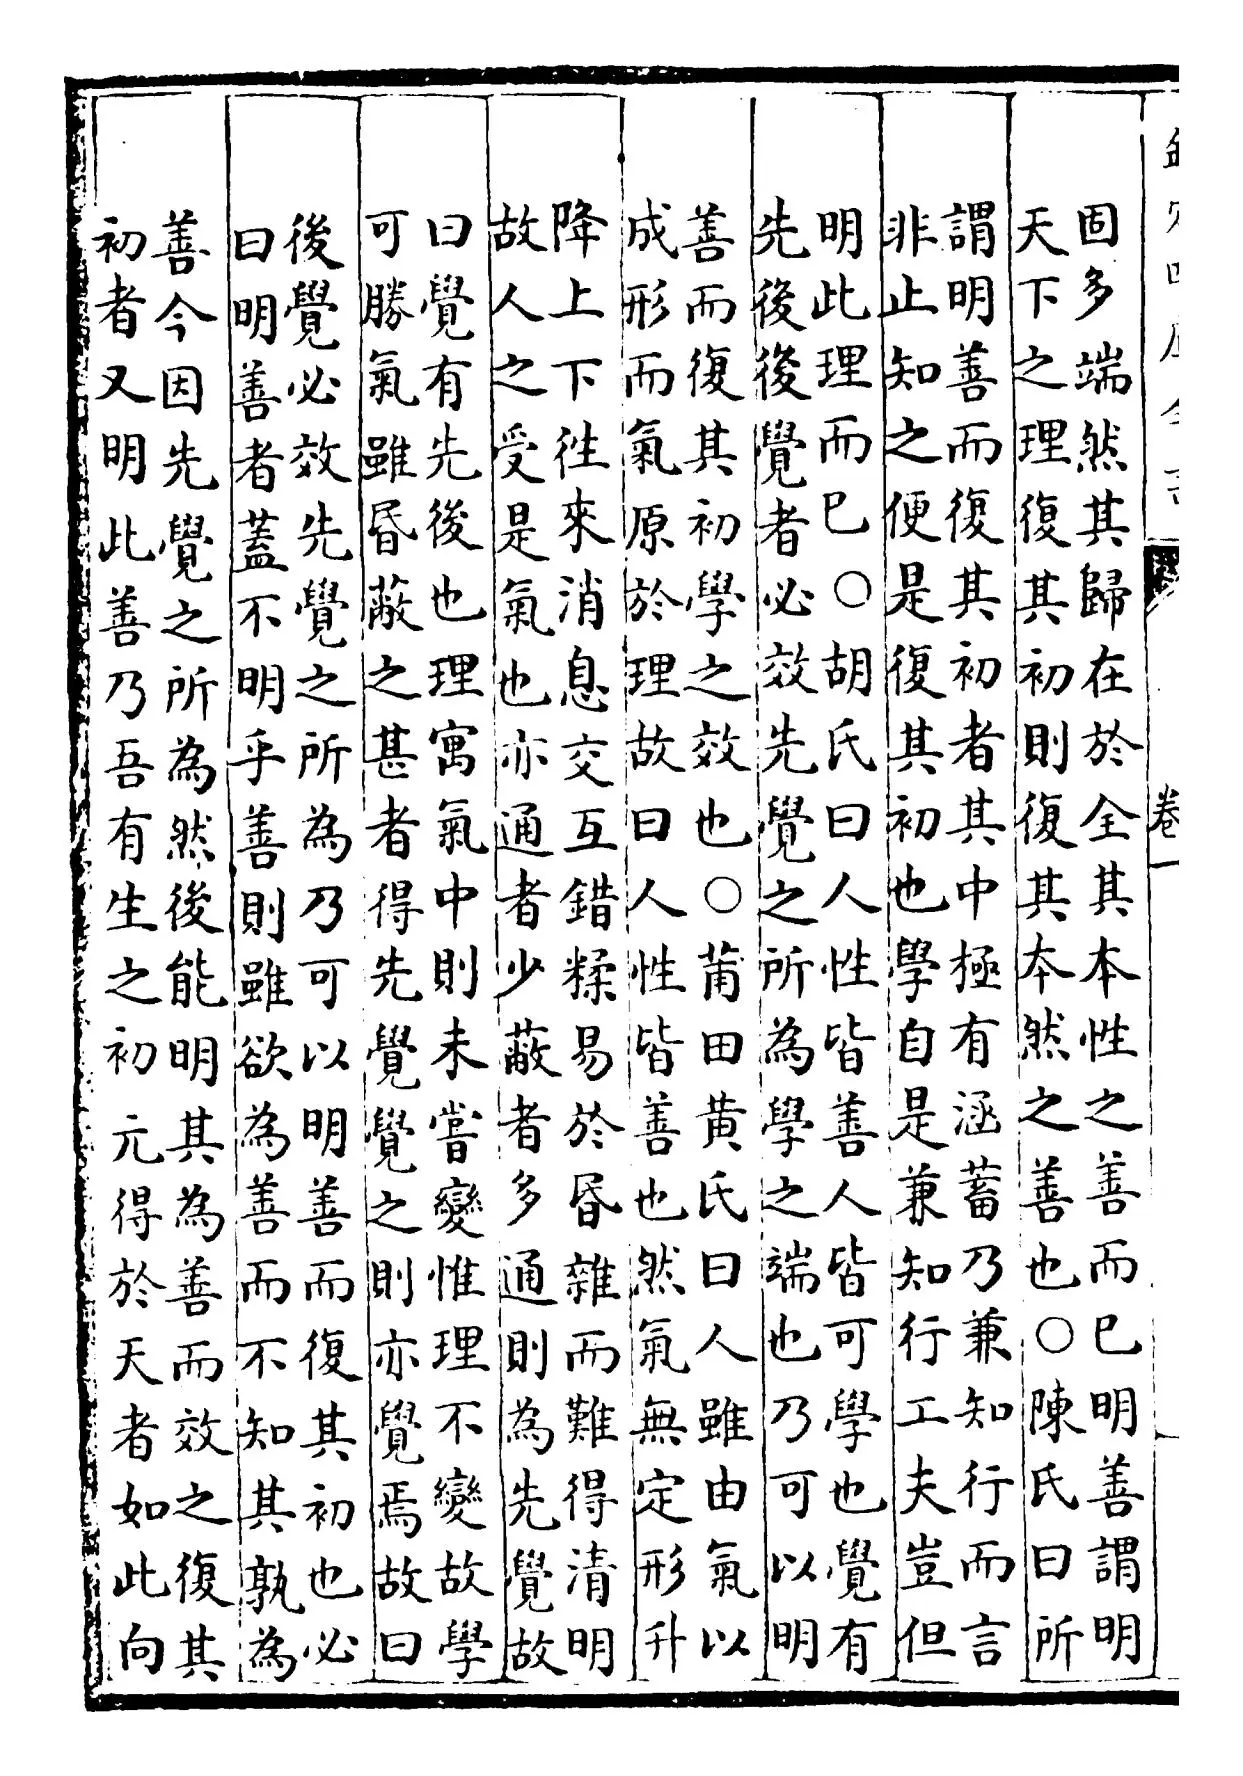 欽定四庫全書
卷一
固多端然其歸在於全其本性之善而已明善謂明
天下之理復其初則復其本然之善也○陳氏曰所
謂明善而復其初者其中極有涵蓄乃兼知行而言
非止知之便是復其初也學自是兼知行工夫豈但
明此理而已○胡氏曰人性皆善人皆可學也覺有
先後後覺者必效先覺之所為學之端也乃可以明
善而復其初學之效也○莆田黃氏曰人雖由氣以
成形而氣原於理故曰人性皆善也然氣無定形升
降上下往來消息交互錯糅易於昏雜而難得清明
故人之受是氣也亦通者少蔽者多通則為先覺故
曰覺有先後也理寓氣中則未嘗變惟理不變故學
可勝氣雖昏蔽之甚者得先覺覺之則亦覺焉故曰
後覺必效先覺之所為乃可以明善而復其初也必
曰明善者蓋不明乎善則雖欲為善而不知其孰為
善今因先覺之所為然後能明其為善而效之復其
初者又明此善乃吾有生之初元得於天者如此向